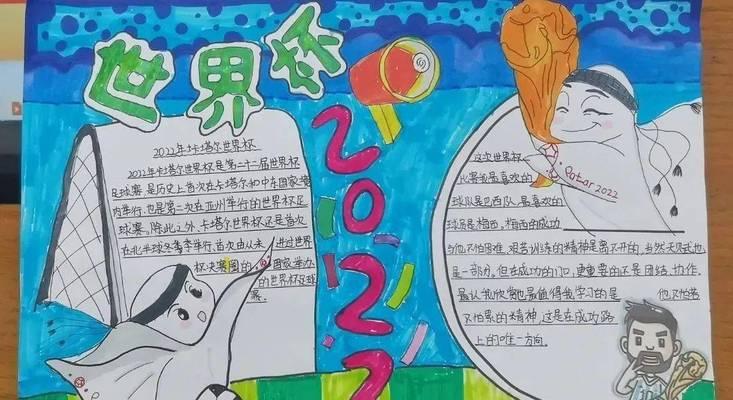 世界杯
2022
2022年卡塔尔世界杯
2022年卡塔尔世界杯是第二十二届世界杯
足球赛,是历史上首次在卡塔尔和中东国家境
内举行,也是第二次在亚洲举行的世界杯足
球赛。除此之外,卡塔尔世界杯还是首次
在北半球冬季举行、首次由从未进过世界
杯决赛圈的国家举办
的世界杯足球
赛。
这次世界杯
比赛我最喜欢的
球队是巴西队,最喜欢的
球员是梅西,梅西的成功
与他不怕困难,艰苦训练的精神是离不开的,当然天赋也
是一部分,但在成功的门口,更重要的还是团结、协作。
最让我欣赏也最值得我学习的是 他不怕苦
不怕累的精神,这是在成功路
上的唯一方向。
Qatar 2022
10